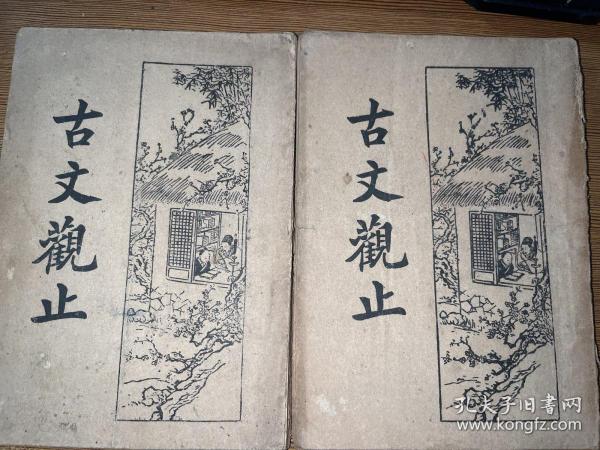 古文觀止
古文觀止
孔夫子旧書网
www.kongfz.com